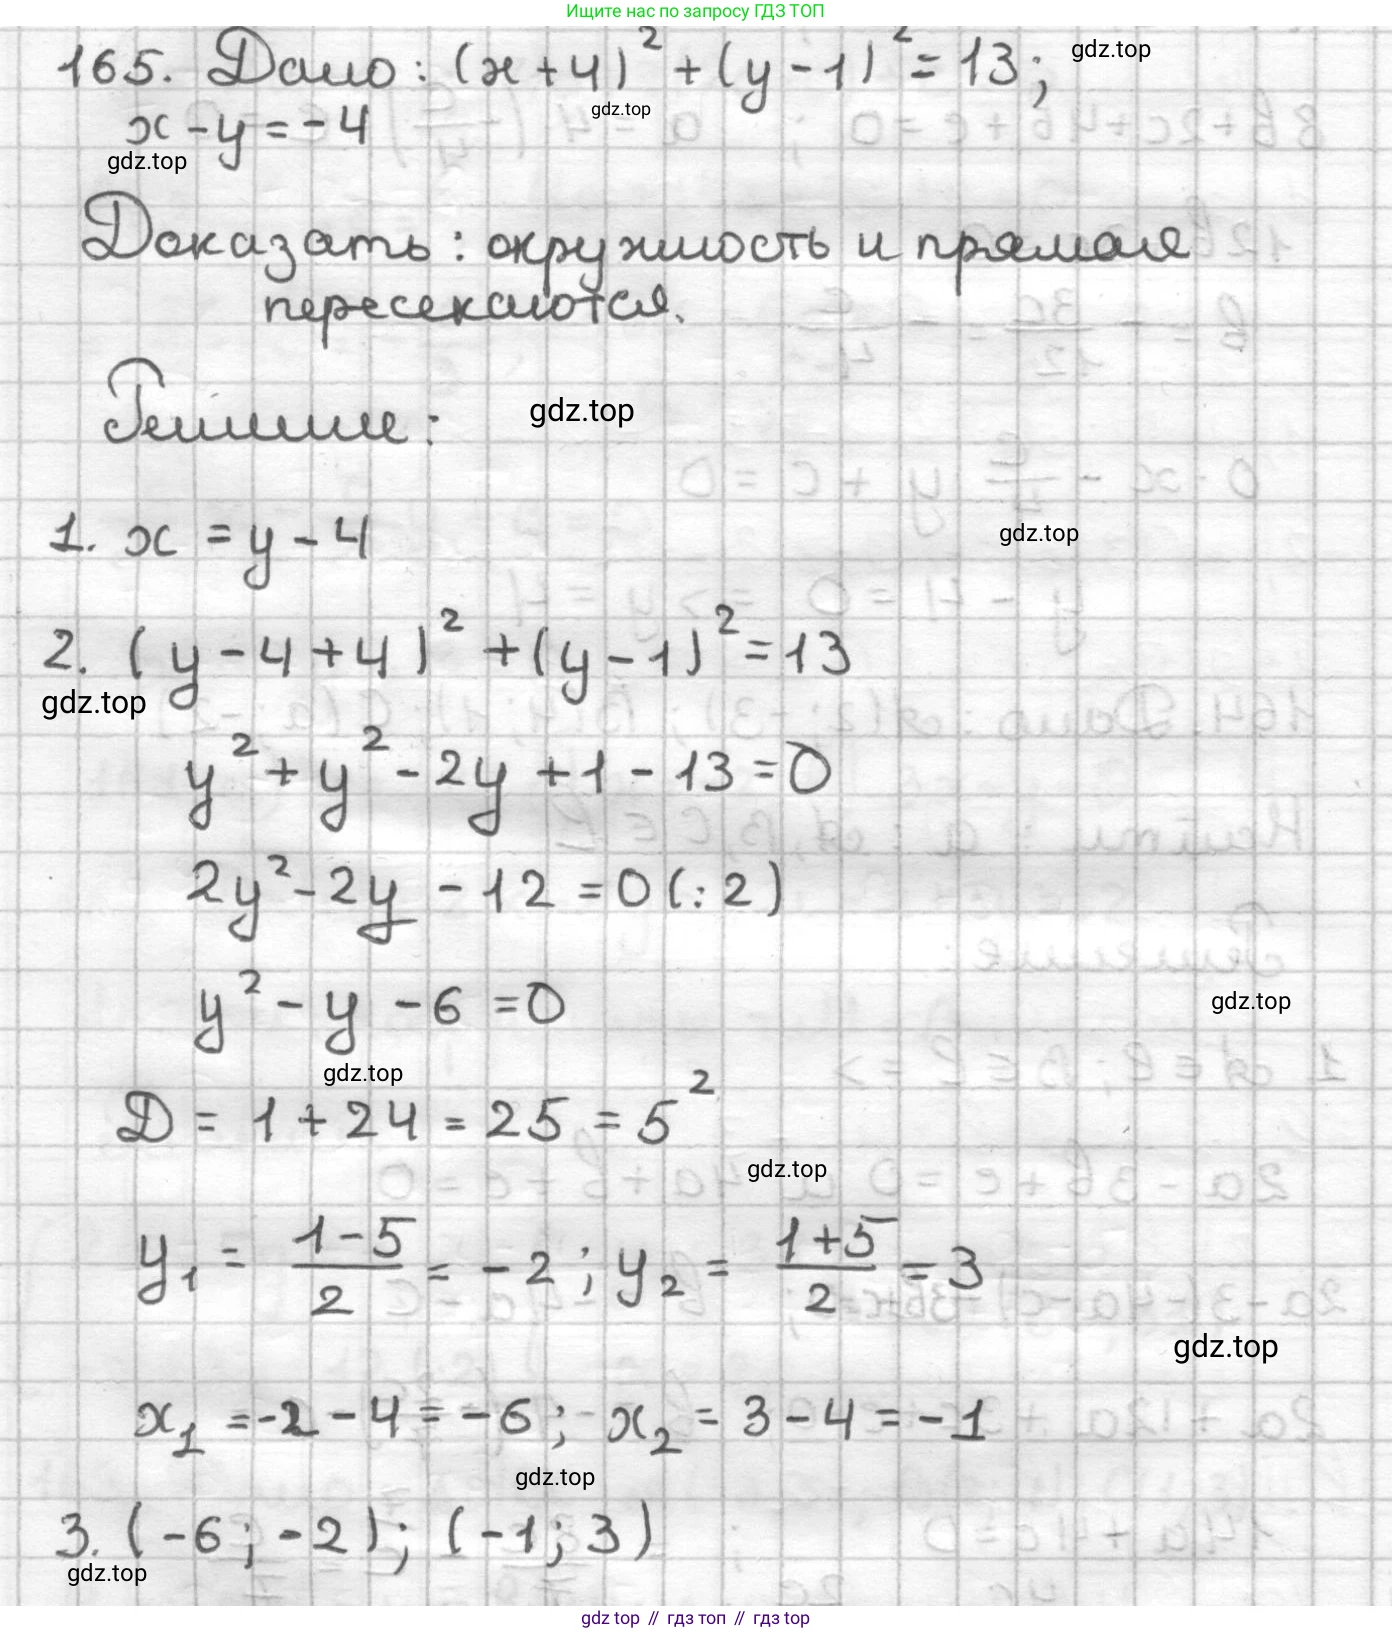 Ищите нас по запросу ГДЗ ТОП
165. Дано: (x+4)² + (y-1)² = 13; gdz.top
gdz.top
x - y = -4
gdz.top
Доказать: окружность и прямая
пересекаются.
Решение: gdz.top
1. x = y - 4 gdz.top
2. (y-4+4)² + (y-1)² = 13
gdz.top
y² + y² - 2y + 1 - 13 = 0
2y² - 2y - 12 = 0 (:2)
y² - y - 6 = 0 gdz.top
gdz.top
D = 1 + 24 = 25 = 5²
gdz.top
y₁ = (1-5)/2 = -2; y₂ = (1+5)/2 = 3
gdz.top
x₁ = -2 - 4 = -6; x₂ = 3 - 4 = -1
gdz.top
3. (-6; -2); (-1; 3)
gdz.top
gdz top // гдз топ // гдз top